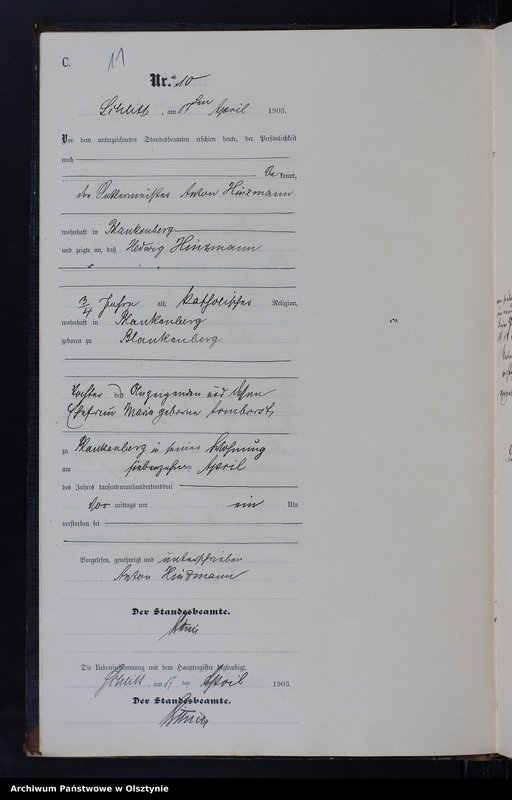 C.
11
Nr. 10
Schlitt, am 17ten April 1903.
Vor dem unterzeichneten Standesbeamten erschien heute, der Persönlichkeit
nach
be kannt,
der Sattlermeister Anton Hinzmann
wohnhaft in Blankenberg
und zeigte an, daß Hedwig Hinzmann
3/4 Jahre alt, katholischer Religion,
wohnhaft in Blankenberg
geboren zu Blankenberg
Tochter des Anzeigenden und dessen
Ehefrau Maria geborene Armborst
zu Blankenberg in seiner Wohnung
am siebenzehnten April
des Jahres tausendneunhundertunddrei
Vor mittags um ein Uhr
verstorben sei
Vorgelesen, genehmigt und unterschrieben
Anton Hinzmann
Der Standesbeamte.
Die Uebereinstimmung mit dem Hauptregister beglaubigt.
Schlitt, am 17 ten April 1903.
Der Standesbeamte.
Archiwum Państwowe w Olsztynie